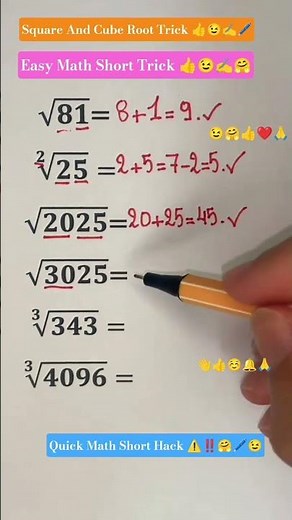 Square And Cube Root Trick 👍😉✍️🖊️
Easy Math Short Trick 👍😉✍️🤗
√81= 8+1=9.✓
😉🤗👍❤️🙏
²√25=2+5=7-2=5.✓
√2025=20+25=45.✓
√3025=
³√343 =
👋👍☺️🔔🙏
³√4096 =
Quick Math Short Hack ⚠️‼️🤗🖊️😉